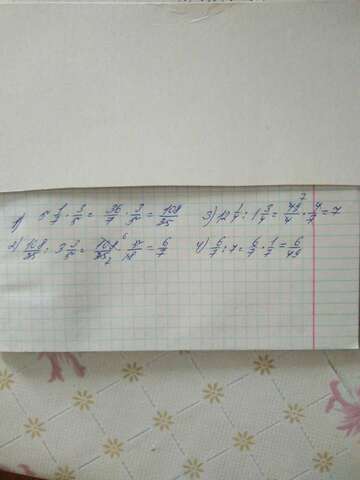 1) 5 1/7 · 3/5 = 36/7 · 3/5 = 108/35 3) 12 1/4 : 1 3/4 = 49/4 · 4/7 = 7
2) 108/35 : 3 3/5 = 108/35 · 5/18 = 6/7 4) 6/7 : 7 = 6/7 · 1/7 = 6/49